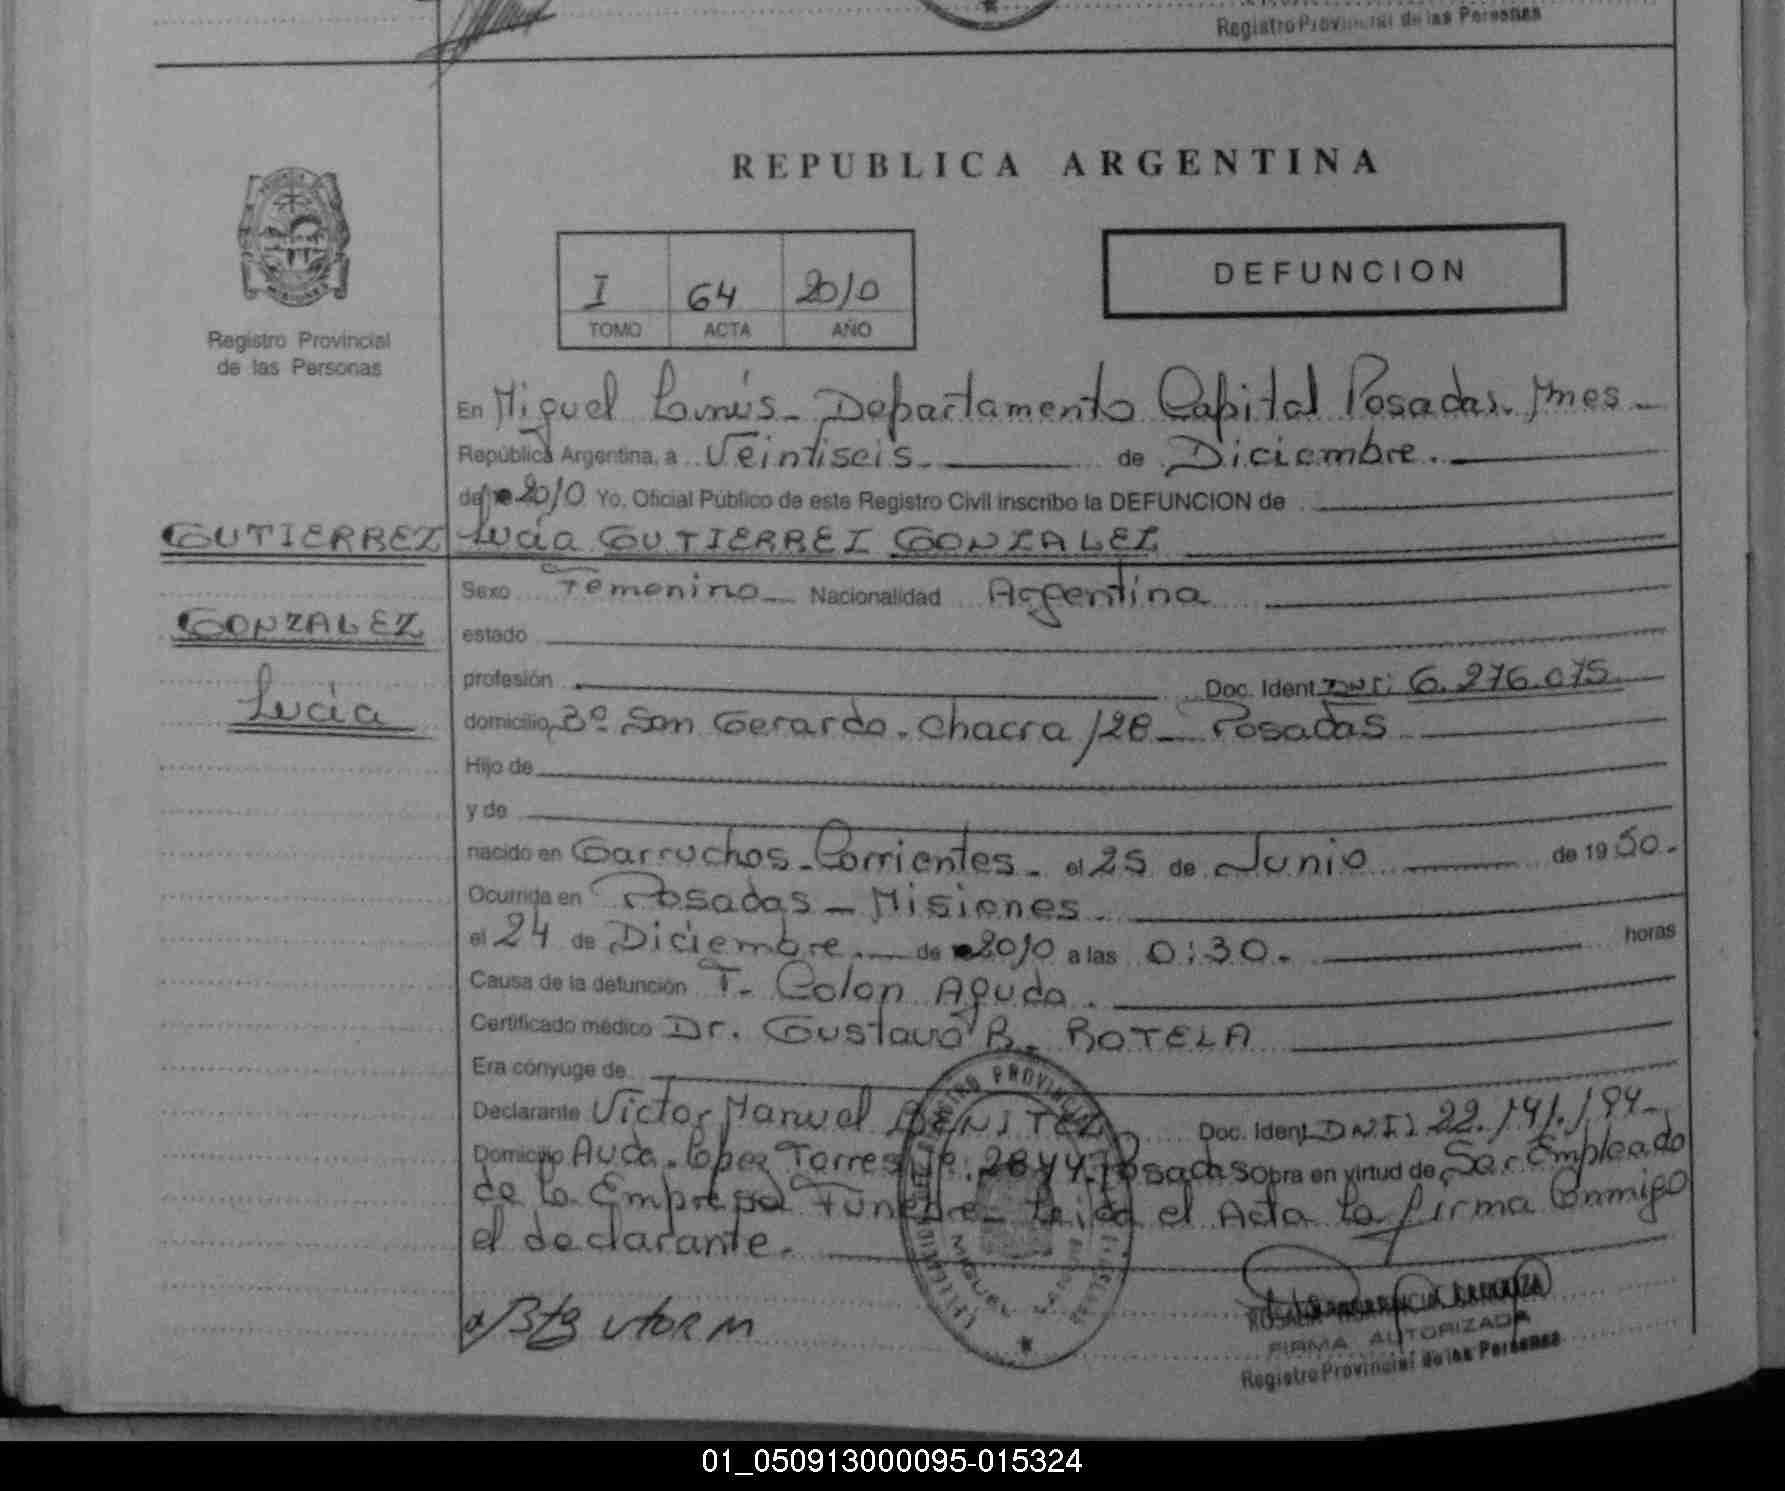 Registro Provincial de las Personas
REPUBLICA ARGENTINA
I 64 2010
TOMO ACTA AÑO
DEFUNCION
Registro Provincial
de las Personas
En Miguel Lanús - Departamento Capital Posadas. Mnes -
República Argentina, a Veintiseis. de Diciembre.
de 2010 Yo, Oficial Público de este Registro Civil inscribo la DEFUNCION de
Lucía GUTIERREZ GONZALEZ
GUTIERREZ
GONZALEZ
Lucía
Sexo Femenino Nacionalidad Argentina
estado
profesión Doc. Ident DNI: 6.276.075
domicilio Bº San Gerardo. Chacra 128 - Posadas
Hijo de
y de
nacido en Garruchos - Corrientes - el 25 de Junio de 1950.
Ocurrida en Posadas - Misiones.
el 24 de Diciembre. de 2010 a las 0:30. horas
Causa de la defunción T. Colon Aguda.
Certificado médico Dr. Gustavo R. ROTELA
Era cónyuge de
Declarante Victor Manuel BENITEZ Doc. Ident DNI: 22.141.194-
Domicilio Avda. López Torres Nº: 2844. Posadas obra en virtud de Ser Empleado
de la Empresa Fúnebre - Leída el Acta la firma Conmigo
el declarante.
REGISTRO PROVINCIAL
MIGUEL LANUS
FIRMA AUTORIZADA
Registro Provincial de las Personas
01_050913000095-015324